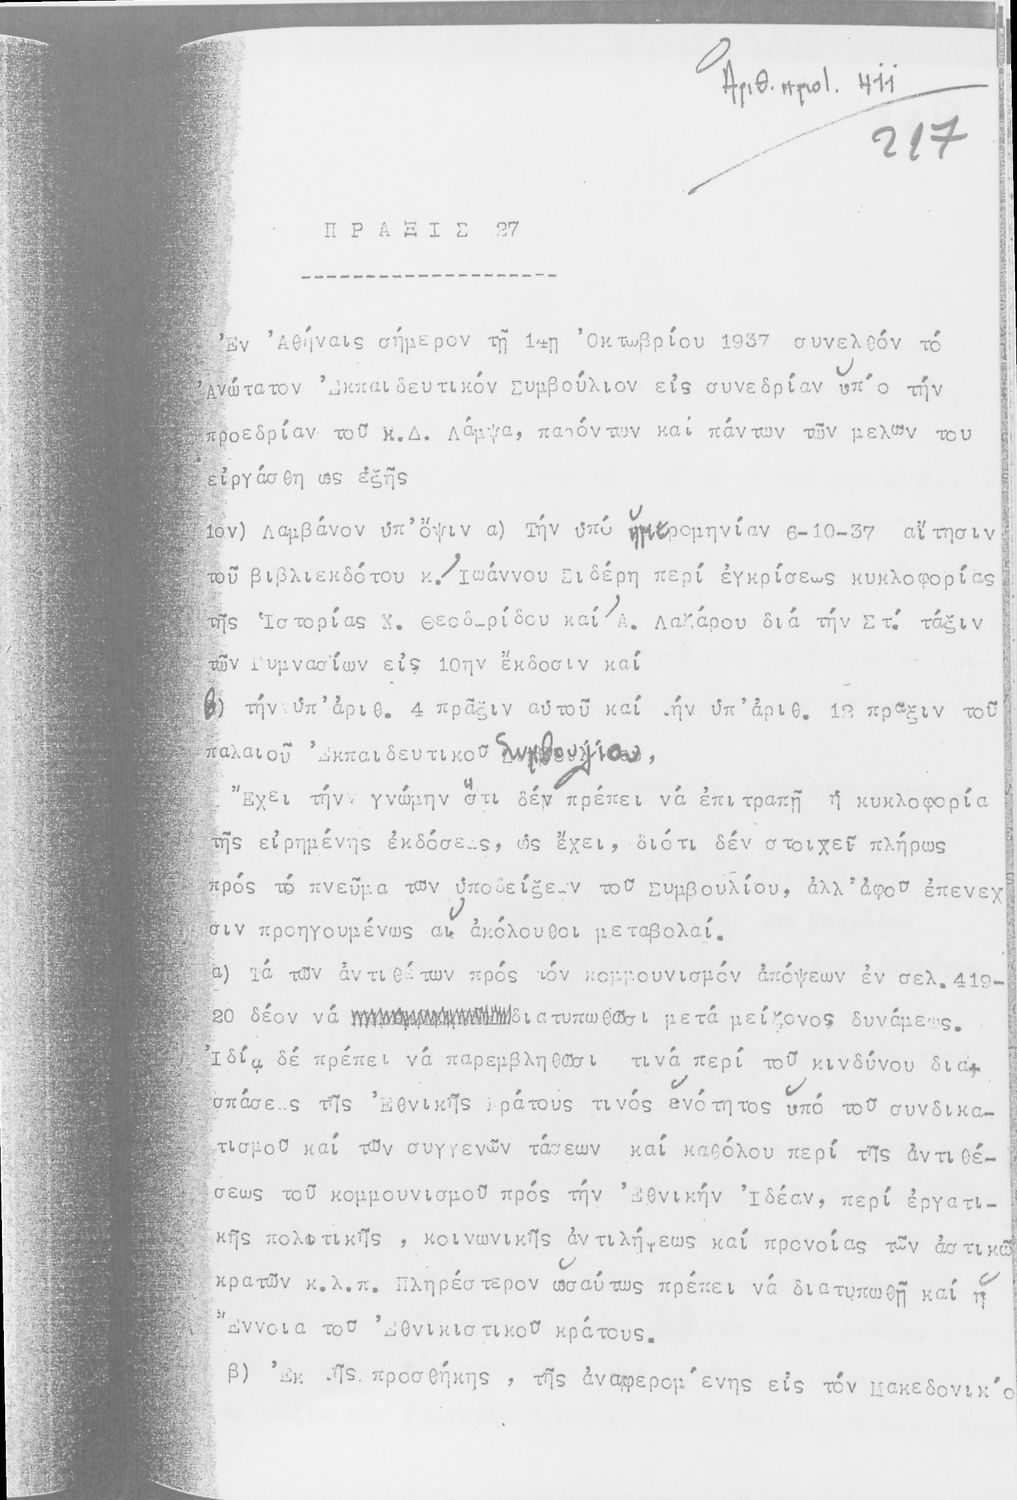 Ἀριθ. πρωτ. 411
217
ΠΡΑΞΙΣ 27
Ἐν Ἀθήναις σήμερον τῇ 14ῃ Ὀκτωβρίου 1937 συνελθόν τό
Ἀνώτατον Ἐκπαιδευτικόν Συμβούλιον εἰς συνεδρίαν ὑπ´ο τήν
προεδρίαν τοῦ κ.Δ. Λάμψα, παρόντων καί πάντων τῶν μελῶν του
εἰργάσθη ὡς ἑξῆς
1ον) Λαμβάνον ὑπ'ὄψιν α) Τήν ὑπό ἡμερομηνίαν 6-10-37 αἴτησιν
τοῦ βιβλιεκδότου κ. Ἰωάννου Σιδέρη περί ἐγκρίσεως κυκλοφορίας
τῆς Ἱστορίας Χ. Θεοδωρίδου καί Α. Λαζάρου διά τήν Στ΄. τάξιν
τῶν Γυμνασίων εἰς 10ην ἔκδοσιν καί
β) τήν ὑπ'ἀριθ. 4 πρᾶξιν αὐτοῦ καί τήν ὑπ'ἀριθ. 12 πρᾶξιν τοῦ
παλαιοῦ Ἐκπαιδευτικοῦ Συμβουλίου,
Ἔχει τήν γνώμην ὅτι δέν πρέπει νά ἐπιτραπῇ ἡ κυκλοφορία
τῆς εἰρημένης ἐκδόσεως, ὡς ἔχει, διότι δέν στοιχεῖ πλήρως
πρός τό πνεῦμα τῶν ὑποδείξεων τοῦ Συμβουλίου, ἀλλ'ἀφοῦ ἐπενεχ
σιν προηγουμένως αἱ ἀκόλουθοι μεταβολαί.
α) Τά τῶν ἀντιθέτων πρός τόν κομμουνισμόν ἀπόψεων ἐν σελ. 419-
20 δέον νά διατυπωθῶσι μετά μείζονος δυνάμεως.
Ἰδίᾳ δέ πρέπει νά παρεμβληθῶσι τινά περί τοῦ κινδύνου δια-
σπάσεως τῆς Ἐθνικῆς κράτους τινός ἑνότητος ὑπό τοῦ συνδικα-
τισμοῦ καί τῶν συγγενῶν τάσεων καί καθόλου περί τῆς ἀντιθέ-
σεως τοῦ κομμουνισμοῦ πρός τήν Ἐθνικήν Ἰδέαν, περί ἐργατι-
κῆς πολιτικῆς , κοινωνικῆς ἀντιλήψεως καί προνοίας τῶν ἀστικῶ
κρατῶν κ.λ.π. Πληρέστερον ὡσαύτως πρέπει νά διατυπωθῇ καί ἡ
Ἔννοια τοῦ Ἐθνικιστικοῦ κράτους.
β) Ἐκ τῆς προσθήκης , τῆς ἀναφερομ´ενης εἰς τόν Μακεδονικ´ο